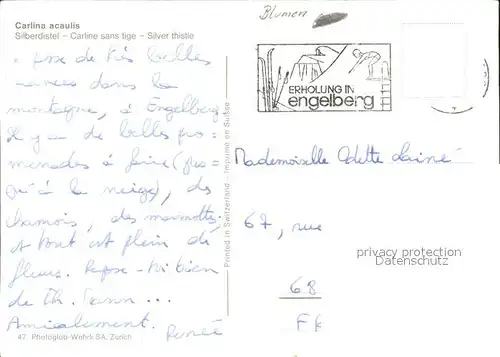 Carlina acaulis
Silberdistel – Carline sans tige – Silver thistle
Blumen
ERHOLUNG IN
engelberg
passe de très belles
vacances dans la
montagne, à Engelberg
Il y a de belles pro=
menades à faire (jus=
qu'à la neige), des
chamois, des marmottes
et tout est plein de
fleurs. Repose-toi bien
de Th.
Amicalement.
Renée
47 Photoglob-Wehrli SA, Zürich
Printed in Switzerland – Imprimé en Suisse
Mademoiselle Odette Lainé
67, rue
privacy protection
Datenschutz
68